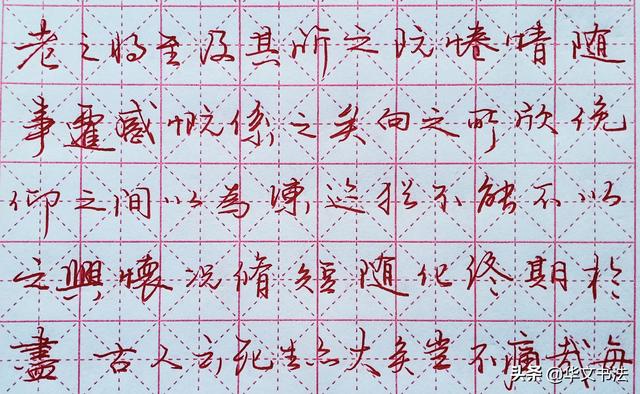 老之将至及其所之既惓情随
事遷感慨係之矣向之所欣俛
仰之间以為陳迹猶不能不以
之興懷況脩短随化終期於
盡古人云死生亦大矣豈不痛哉每
头条 @华文书法